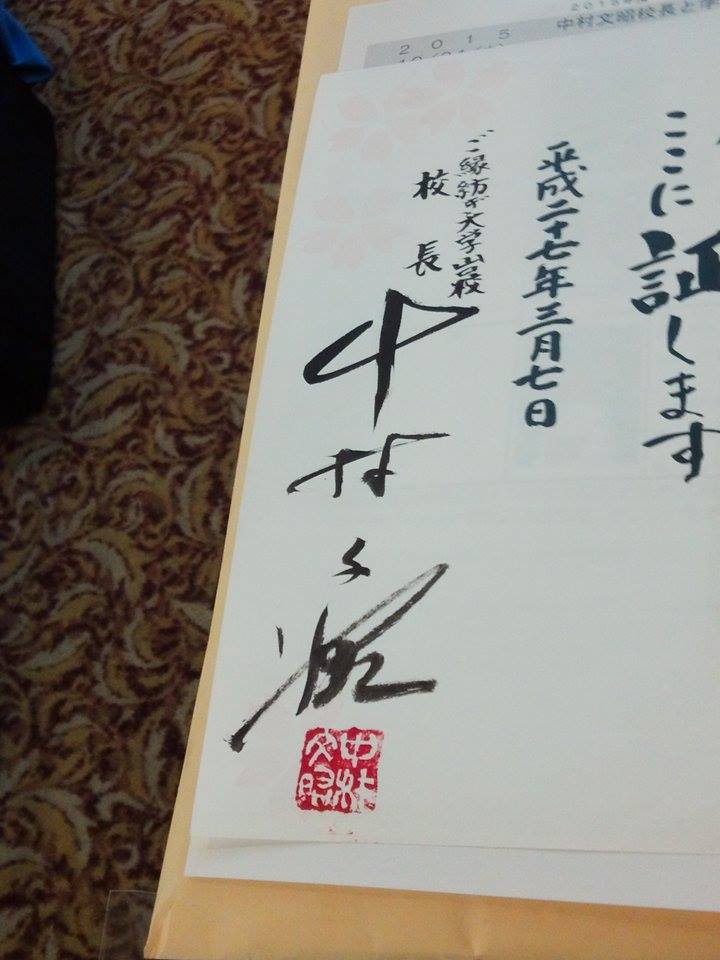 2015
中村文昭校長と
2015
ここに証します
平成二十七年三月七日
ご縁紡ぎ大学
校長
中村文昭
中村文昭